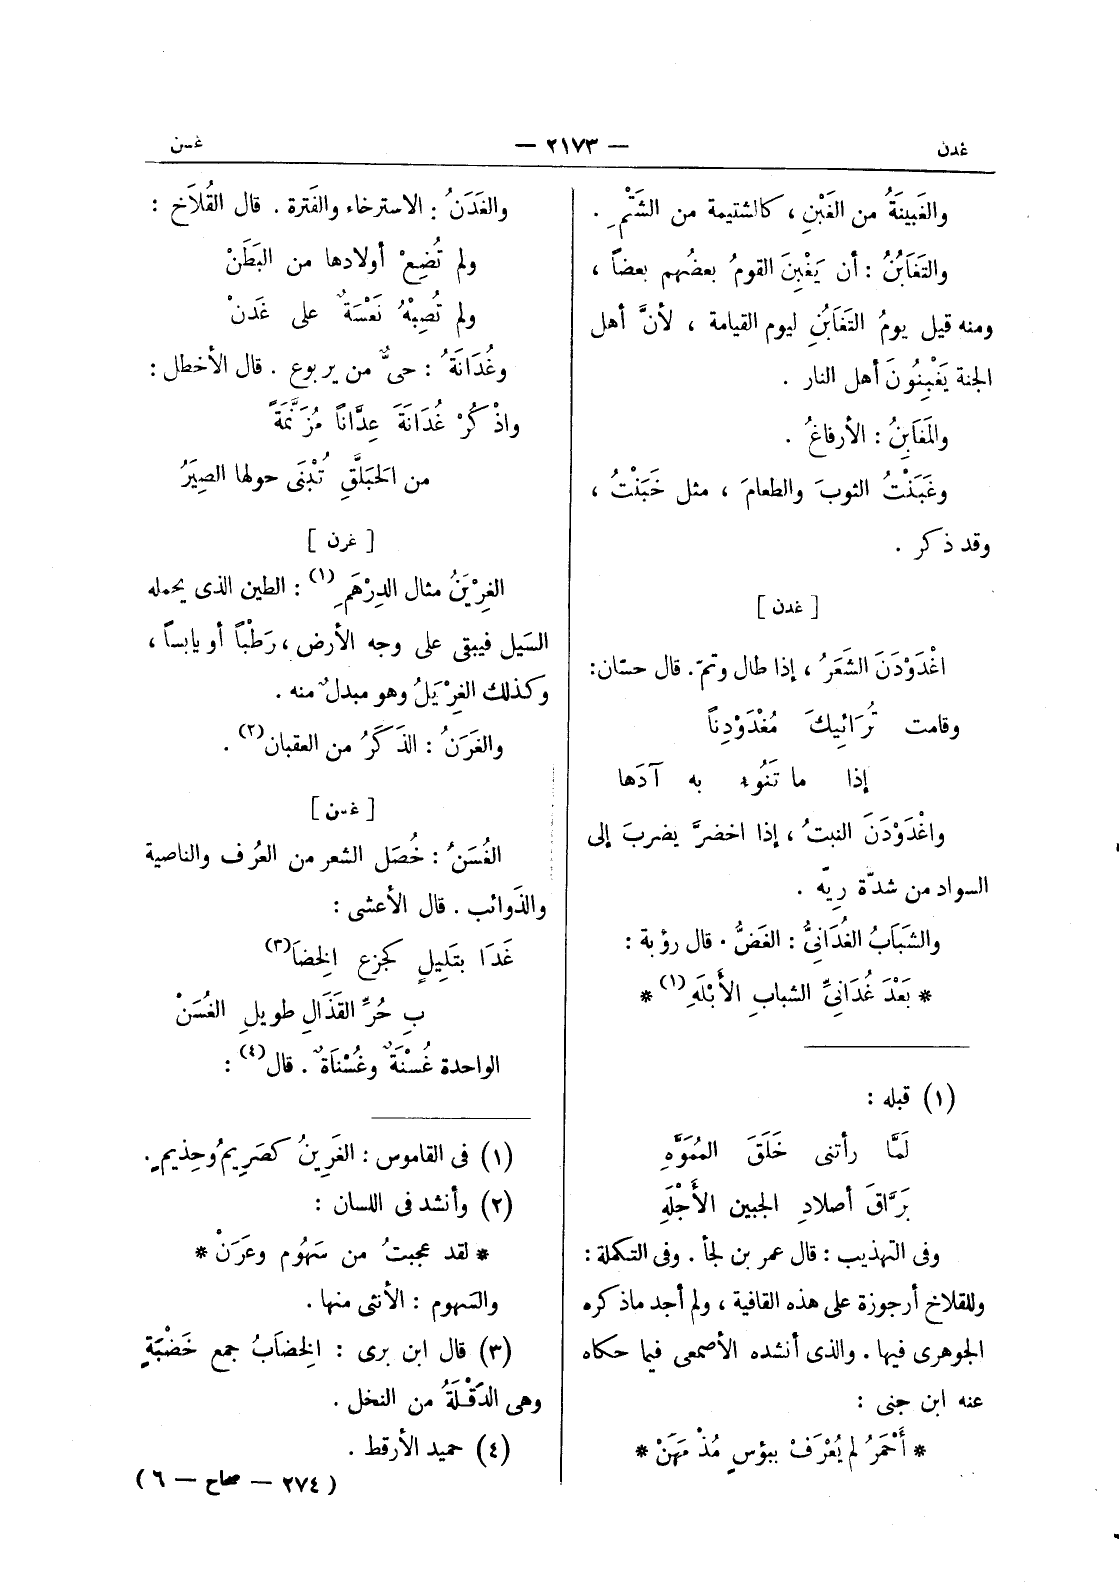 غدن
— ٢١٧٣ —
غسن
والغَبينَةُ من الغَبْنِ ، كالشتيمة من الشَتْمِ .
والتَغَابُنُ : أن يَغْبِنَ القومُ بعضُهم بعضاً ،
ومنه قيل يومُ التَغَابُنِ ليوم القيامة ، لأنَّ أهل
الجنة يَغْبِنُونَ أهل النار .
والمَغَابِنُ : الأرفاغُ .
وغَبَنْتُ الثوبَ والطعامَ ، مثل خَبَنْتُ ،
وقد ذكر .
[ غدن ]
اغْدَوْدَنَ الشَعَرُ ، إذا طال وتمّ. قال حسّان:
وقامت تُرَائِيكَ مُغْدَوْدِناً
إذا ما تَنُوءُ به آدَها
واغْدَوْدَنَ النبتُ ، إذا اخضرَّ يضربَ إلى
السواد من شدّة رِيّه .
والشَبَابُ الغُدَانِيُّ : الغَضُّ . قال رؤبة :
* بَعْدَ غُدَانِيِّ الشبابِ الأَبْلَهِ (١) *
(١) قبله :
لَمَّا رأتنى خَلَقَ المُمَوَّهِ
بَرَّاقَ أصلادِ الجبين الأَجْلَهِ
وفى التهذيب : قال عمر بن لجأ . وفى التكملة :
وللقلاخ أرجوزة على هذه القافية ، ولم أجد ماذكره
الجوهرى فيها . والذى أنشده الأصمعى فيما حكاه
عنه ابن جنى :
* أَحْمَرُ لم يُعْرَفْ ببؤسٍ مُذْ مَهَنْ *
والغَدَنُ : الاسترخاء والفترة . قال القُلاَخ :
ولم تُضِعْ أولادها من البَطَنْ
ولم تُصِبْهُ نَعْسَةٌ على غَدَنْ
وغُدَانَةُ : حىٌّ من يربوع . قال الأخطل :
واذْكُرْ غُدَانَةَ عِدَّاناً مُزَنَّمَةً
من الحَبَلَّقِ تُبْنَى حولها الصِيَرُ
[ غرن ]
الغِرْيَنُ مثال الدِرْهَمِ (١) : الطين الذى يحمله
السَيل فيبقى على وجه الأرض ، رَطْباً أو يابساً ،
وكذلك الغِرْيَلُ وهو مبدلٌ منه .
والغَرَنُ : الذَكَرُ من العقبان (٢) .
[ غسن ]
الغُسَنُ : خُصَل الشعر من العرْف والناصية
والذَوائب . قال الأعشى :
غَدَا بتَلِيلٍ كجزع الخِضَا (٣)
بِ حُرِّ القَذَالِ طويلِ الغُسَنْ
الواحدة غُسْنَةٌ وغُسْنَاةٌ . قال (٤) :
(١) فى القاموس : الغَرِينُ كصَرِيمٍ وحِذيمٍ .
(٢) وأنشد فى اللسان :
* لقد عجبتُ من سَهُوم وغَرَنْ *
والسَهوم : الأنثى منها .
(٣) قال ابن برى : الخِضَابُ جمع خَضْبَةٍ
وهى الدَقْلَةُ من النخل .
(٤) حميد الأرقط .
( ٢٧٤ — صحاح — ٦ )